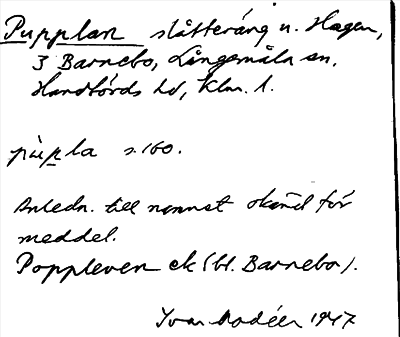 Pupplan slåtteräng u. Hagen,
3 Barnebo, Långemåla sn.
Handbörds hd, Klm. l.
pùpla s. 160.
Anledn. till namnet okänd för
meddel.
Poppleven ek (bl. Barnebo).
Ivar Modéer 1947